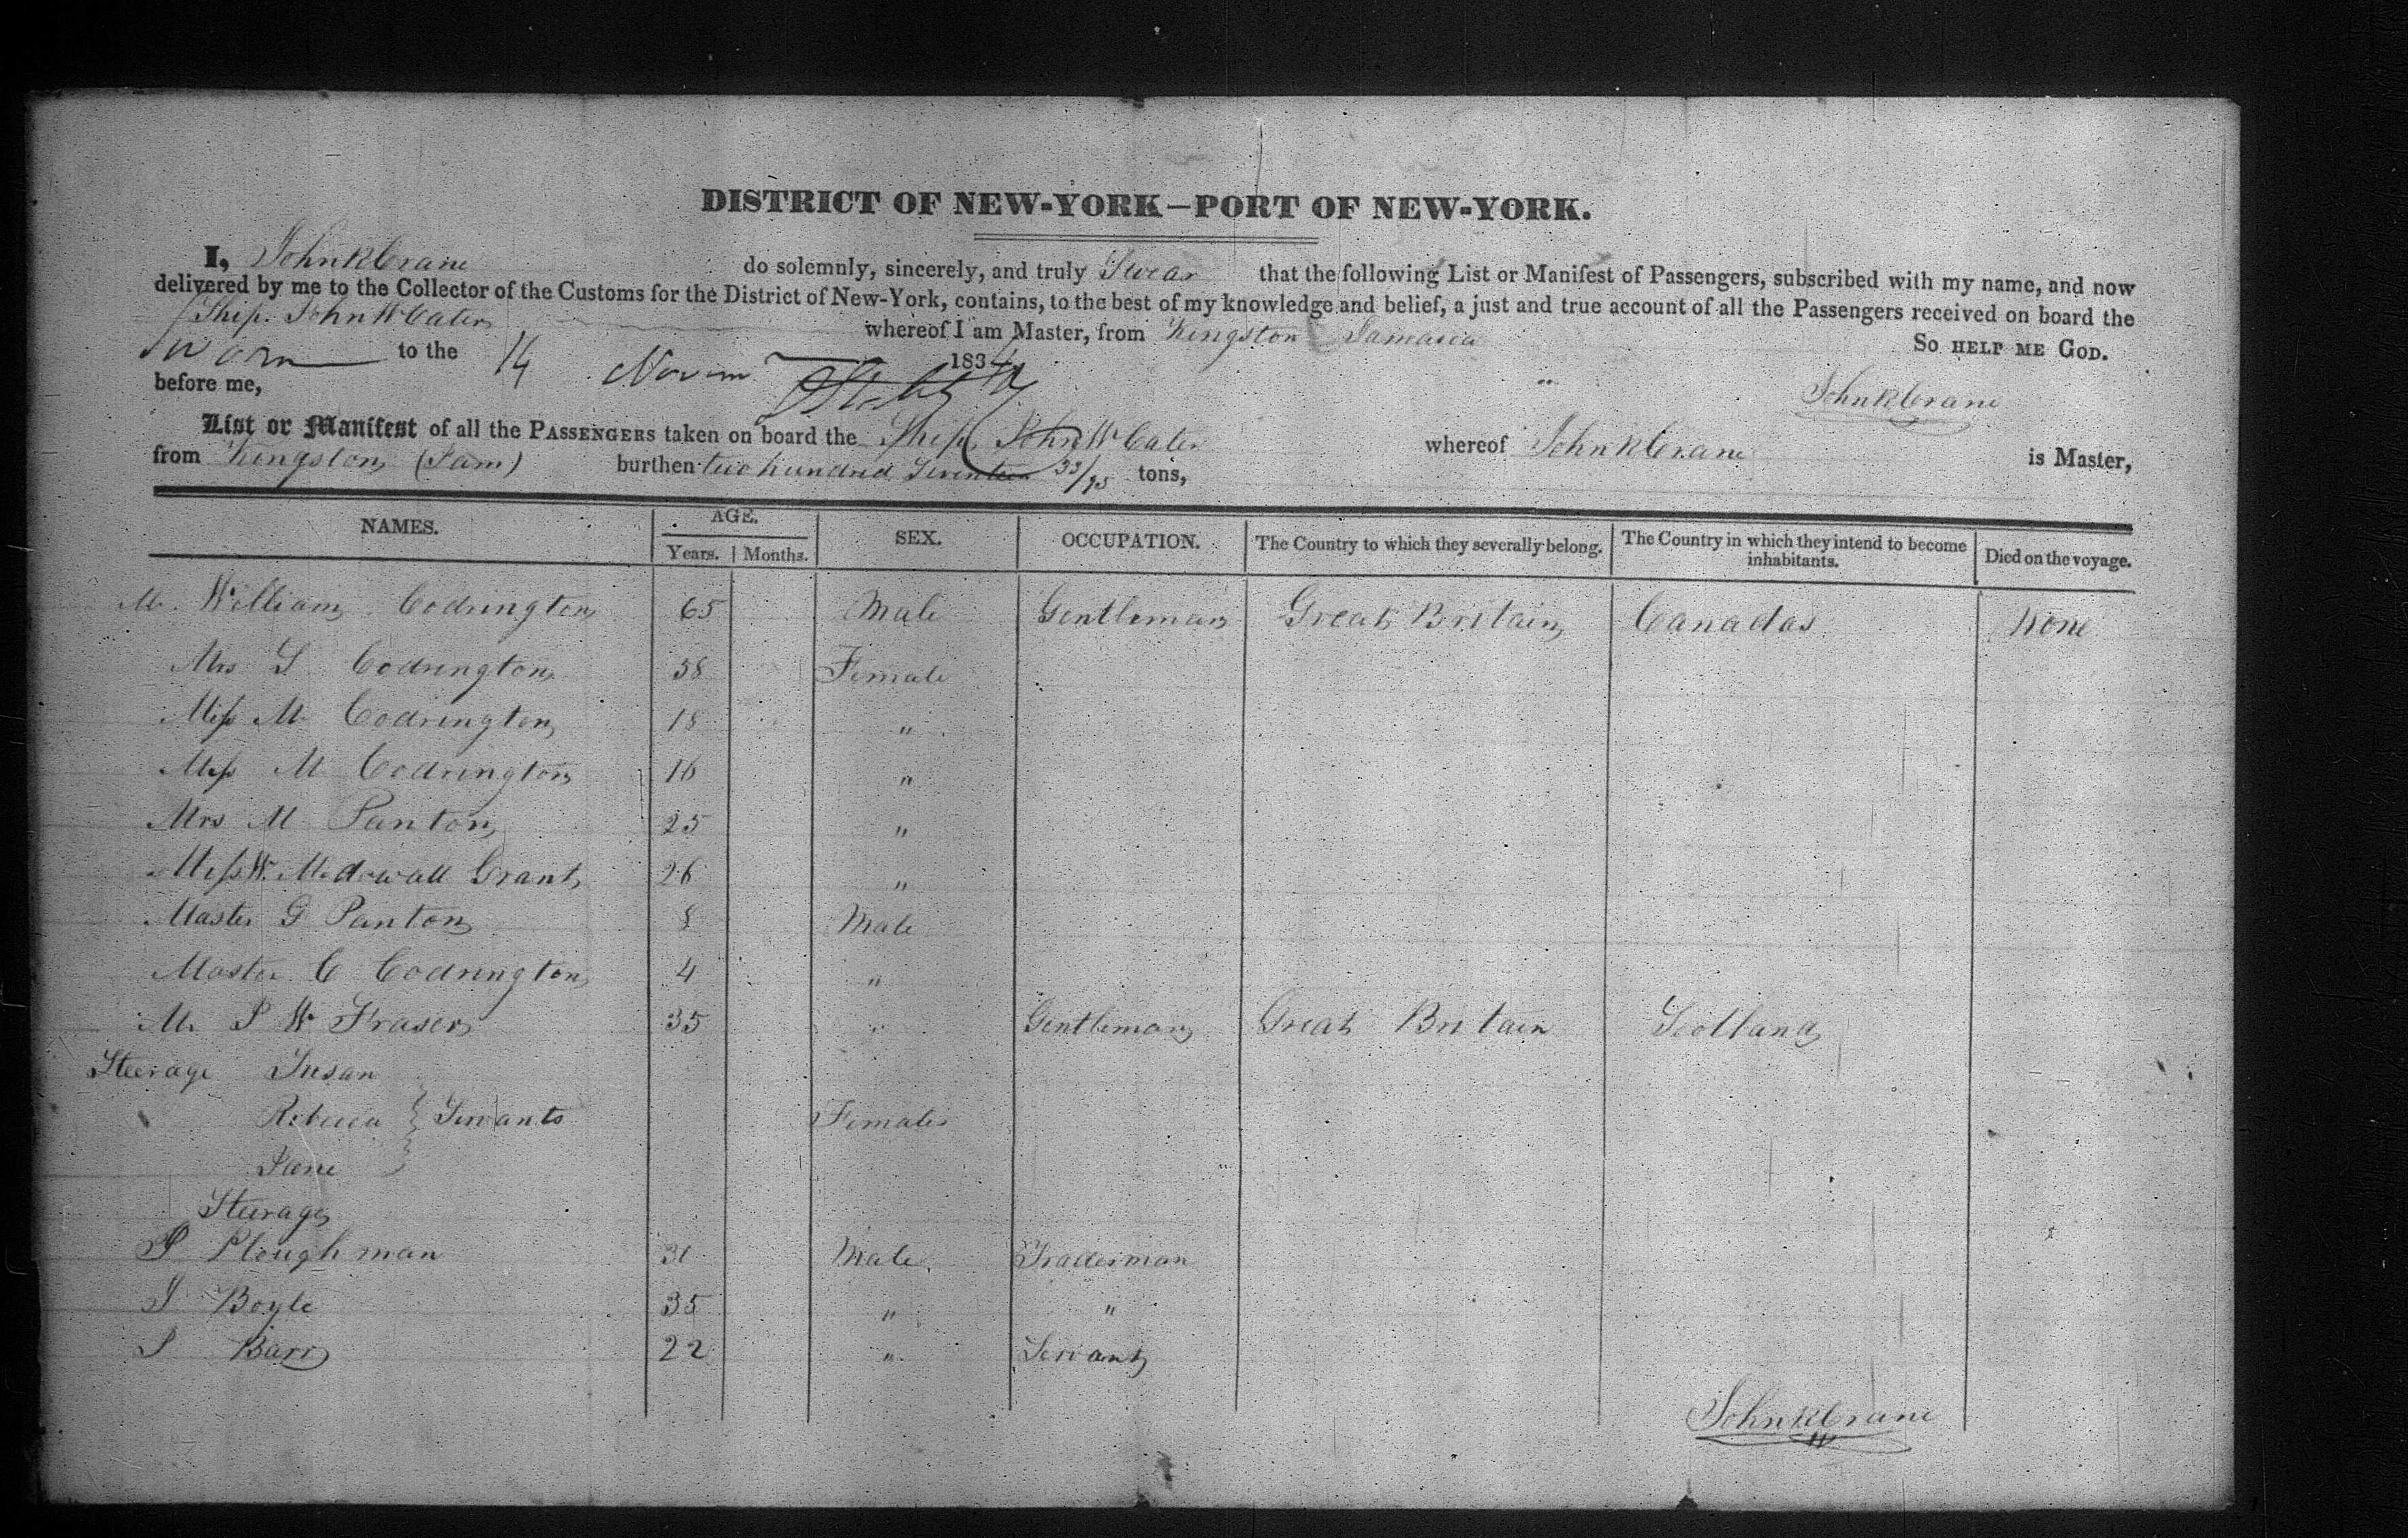 DISTRICT OF NEW-YORK—PORT OF NEW-YORK.
I, John R Crane do solemnly, sincerely, and truly Swear that the following List or Manifest of Passengers, subscribed with my name, and now
delivered by me to the Collector of the Customs for the District of New-York, contains, to the best of my knowledge and belief, a just and true account of all the Passengers received on board the
Ship John W Cater whereof I am Master, from Kingston Jamaica
So HELP ME GOD.
Sworn to the 14 Novem 183
before me,
John R Crane
List or Manifest of all the PASSENGERS taken on board the Ship John W Cater whereof John R Crane is Master,
from Kingston (Jam) burthen two hundred Seventeen 33/95 tons,
NAMES. AGE. SEX. OCCUPATION. The Country to which they severally belong. The Country in which they intend to become inhabitants. Died on the voyage.
Years. Months.
Mr. William Codrington 65 Male Gentleman Great Britain Canadas None
Mrs S Codrington 58 Female
Miss M Codrington 18 "
Miss M Codrington 16 "
Mrs M Panton 25 "
Miss W. Mcdowall Grant 26 "
Master G Panton 8 Male
Master C Codrington 4 "
Mr P W Fraser 35 " Gentleman Great Britain Scotland
Steerage Susan
Rebecca } Servants Females
Jane
Steerage
P Ploughman 31 Male Tradesman
J Boyle 35 " "
J Barr 22 " Servant
John R Crane